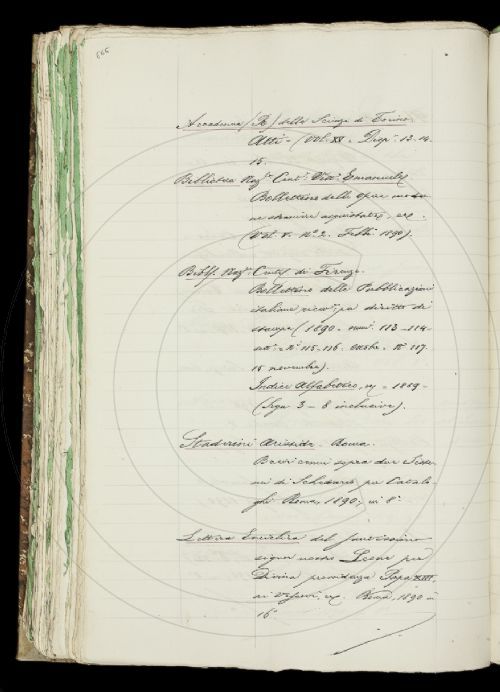 Accademia (R.) delle Scienze di Torino.
Atti - (Vol. XV - Disp. 13. 14.
15.
Biblioteca Naz.le Cent.le Vitt. Emanuele
Bollettino delle opere moder
ne straniere acquistate, ec.
(Vol. V. N.° 2. Febb. 1890).
Bibl. Naz.le Cent.le di Firenze.
Bollettino delle Pubblicazioni
italiane ricev.te per diritto di
stampa (1890 - num. 113-114-
ott. - N.i 115-116. - N. 117.
15 novembre).
Indice Alfabetico, - 1889 -
(Segn 3 - 8 inclusive).
Staderini Aristide - Roma.
Brevi cenni sopra due Siste
mi di Schedario per Catalo
ghi Roma, 1890, in 8°
Lettera Enciclica del Santissimo
signor nostro Leone per
Divina provvidenza Papa XIII,
ai Vescovi, ec. Roma, 1890 in
16°